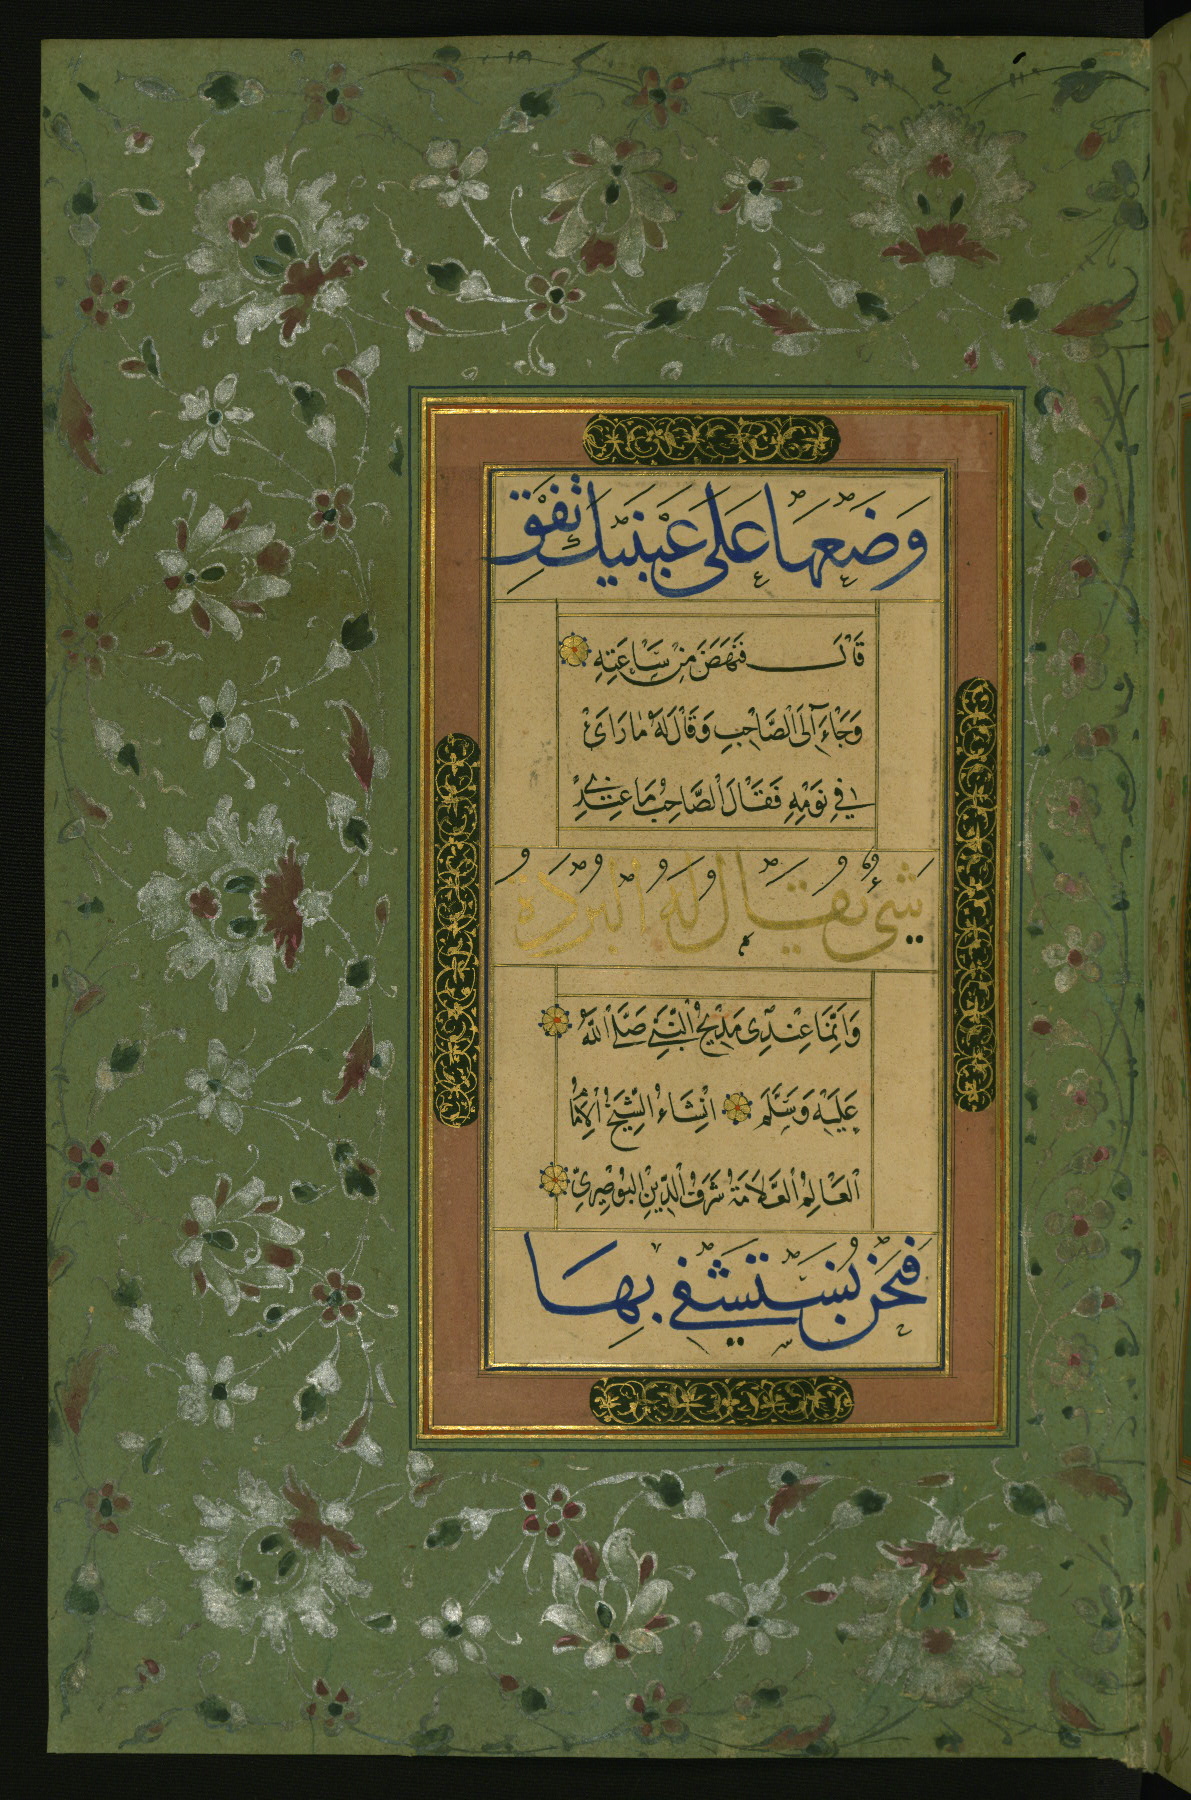 وَضَعها عَلى عَيْنَيْكَ تَفِقْ
قَالَ فَنَهَضَ مِنْ سَاعَتِهِ
وَجَاءَ اِلَى الصَّاحِبِ وَقَالَ لَهُ مٰا رَاىَ
فِي نَوْمِهِ فَقَالَ الصَّاحِبُ مَا عِنْدِي
شَيْءٌ يُقَالُ لَهُ الْبُرْدَةُ
وَاِنَّمَا عِنْدِى مَدِيْحُ النَّبِيِّ صَلَّى اللّٰهُ
عَلَيْهِ وَسَلَّمَ اِنْشَاءُ الشَّيْخِ الْاِمَامِ
الْعَالِمِ الْعَلَّامَةِ شَرَفِ الدِّيْنِ الْبُوْصِيْرِيِّ
فَنَحْنُ نَسْتَشْفِي بِهَا